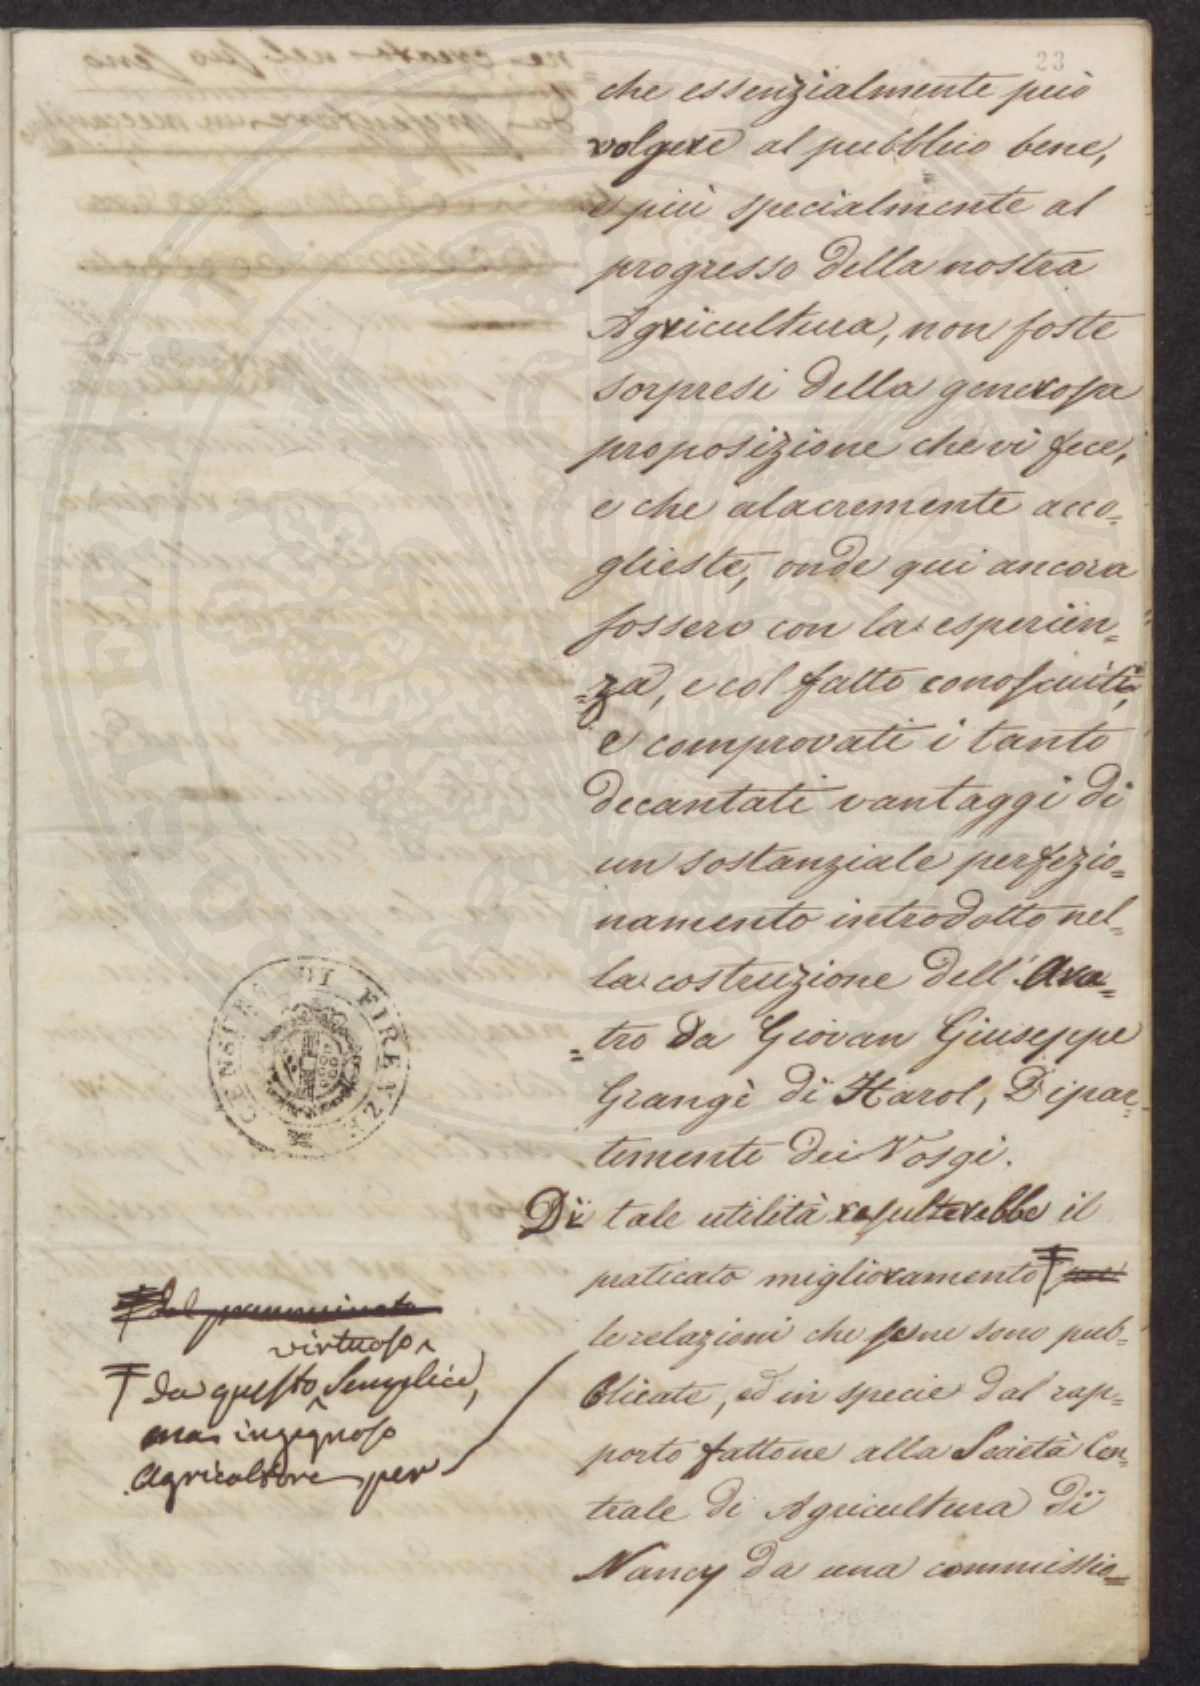 23
che essenzialmente può
volgere al pubblico bene,
e più specialmente al
progresso della nostra
Agricultura, non foste
sorpresi della generosa
proposizione che vi fece,
e che alacremente acco=
glieste, onde qui ancora
fossero con la esperien=
=za, e col fatto conosciuti,
e comprovati i tanto
decantati vantaggi di
un sostanziale perfezio=
namento introdotto nel=
la costruzione dell'Ara=
=tro da Giovan Giuseppe
Grangè di Harol, Dipar=
timento dei Vosgi.
Di tale utilità resulterebbe il
praticato miglioramento per
le relazioni che se ne sono pub=
blicate, ed in specie dal rap=
porto fattone alla Società Cen=
trale di Agricultura di
Nancy da una commissio=
del
virtuoso
da questo Semplice,
ma ingegnoso
Agricoltore per
CENSURA DI FIRENZE